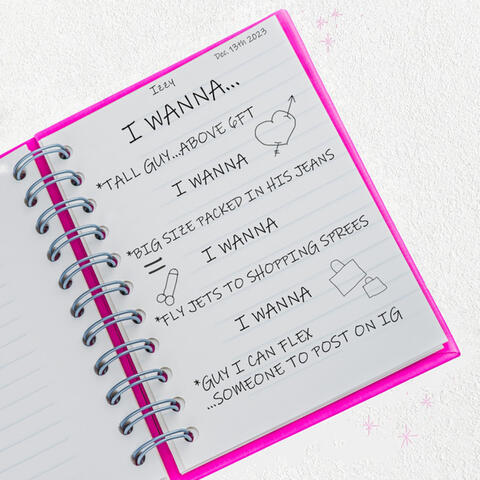 Dec. 13th 2023
Izzy
I WANNA...
*TALL GUY...ABOVE 6FT
I WANNA
*BIG SIZE PACKED IN HIS JEANS
I WANNA
*FLY JETS TO SHOPPING SPREES
I WANNA
*GUY I CAN FLEX
...SOMEONE TO POST ON IG